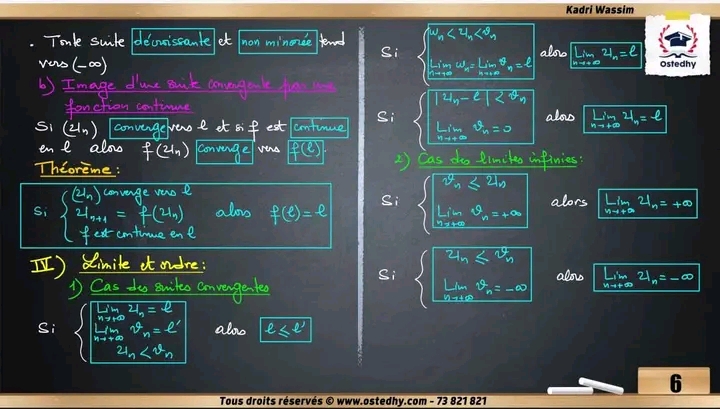 Kadri Wassim
Ostedhy
. Toute suite décroissante et non minorée tend
vers (-∞)
b) Image d'une suite convergente par une
fonction continue
Si (Un) converge vers l et si f est continue
en l alors f(Un) converge vers f(l).
Théorème :
Si { (Un) converge vers l
Un+1 = f(Un) alors f(l) = l
f est continue en l
IV) Limite et ordre :
1) Cas des suites convergentes
Si { Lim n→+∞ Un = l
Lim n→+∞ Vn = l' alors l ≤ l'
Un < Vn
Si { Wn < Un < Vn
Lim n→+∞ Wn = Lim n→+∞ Vn = l alors Lim n→+∞ Un = l
Si { |Un - l| < Vn
Lim n→+∞ Vn = 0 alors Lim n→+∞ Un = l
2) Cas des limites infinies :
Si { Vn ≤ Un
Lim n→+∞ Vn = +∞ alors Lim n→+∞ Un = +∞
Si { Un ≤ Vn
Lim n→+∞ Vn = -∞ alors Lim n→+∞ Un = -∞
6
Tous droits réservés © www.ostedhy.com - 73 821 821